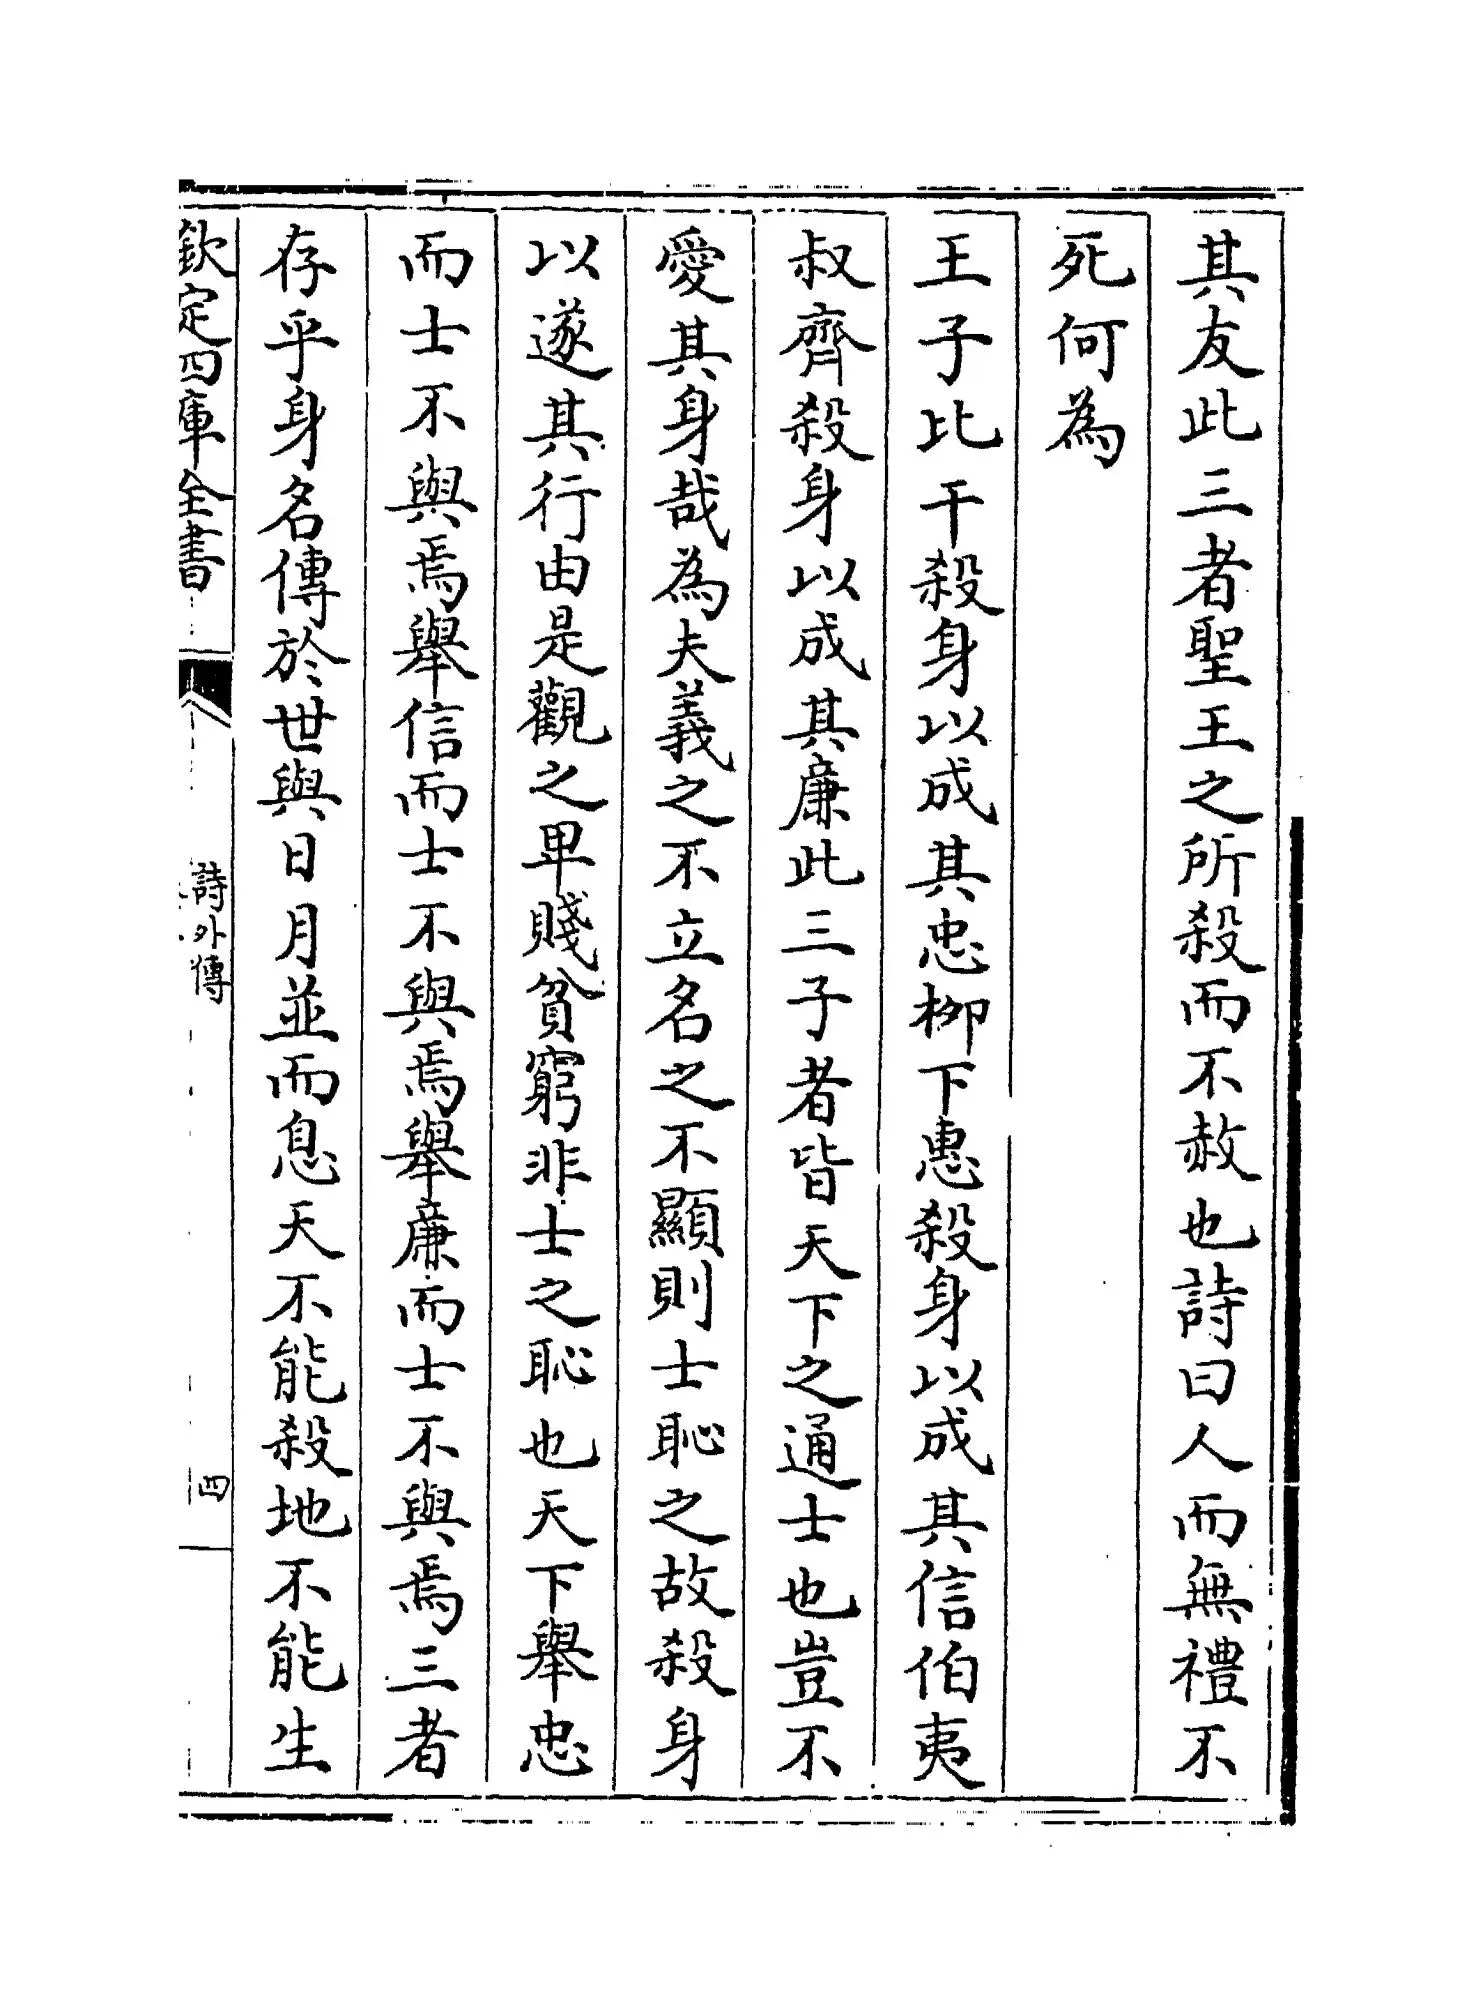 其友此三者聖王之所殺而不赦也詩曰人而無禮不
死何為
王子比干殺身以成其忠柳下惠殺身以成其信伯夷
叔齊殺身以成其廉此三子者皆天下之通士也豈不
愛其身哉為夫義之不立名之不顯則士恥之故殺身
以遂其行由是觀之卑賤貧窮非士之恥也天下舉忠
而士不與焉舉信而士不與焉舉廉而士不與焉三者
存乎身名傳於世與日月並而息天不能殺地不能生
欽定四庫全書
詩外傳
四